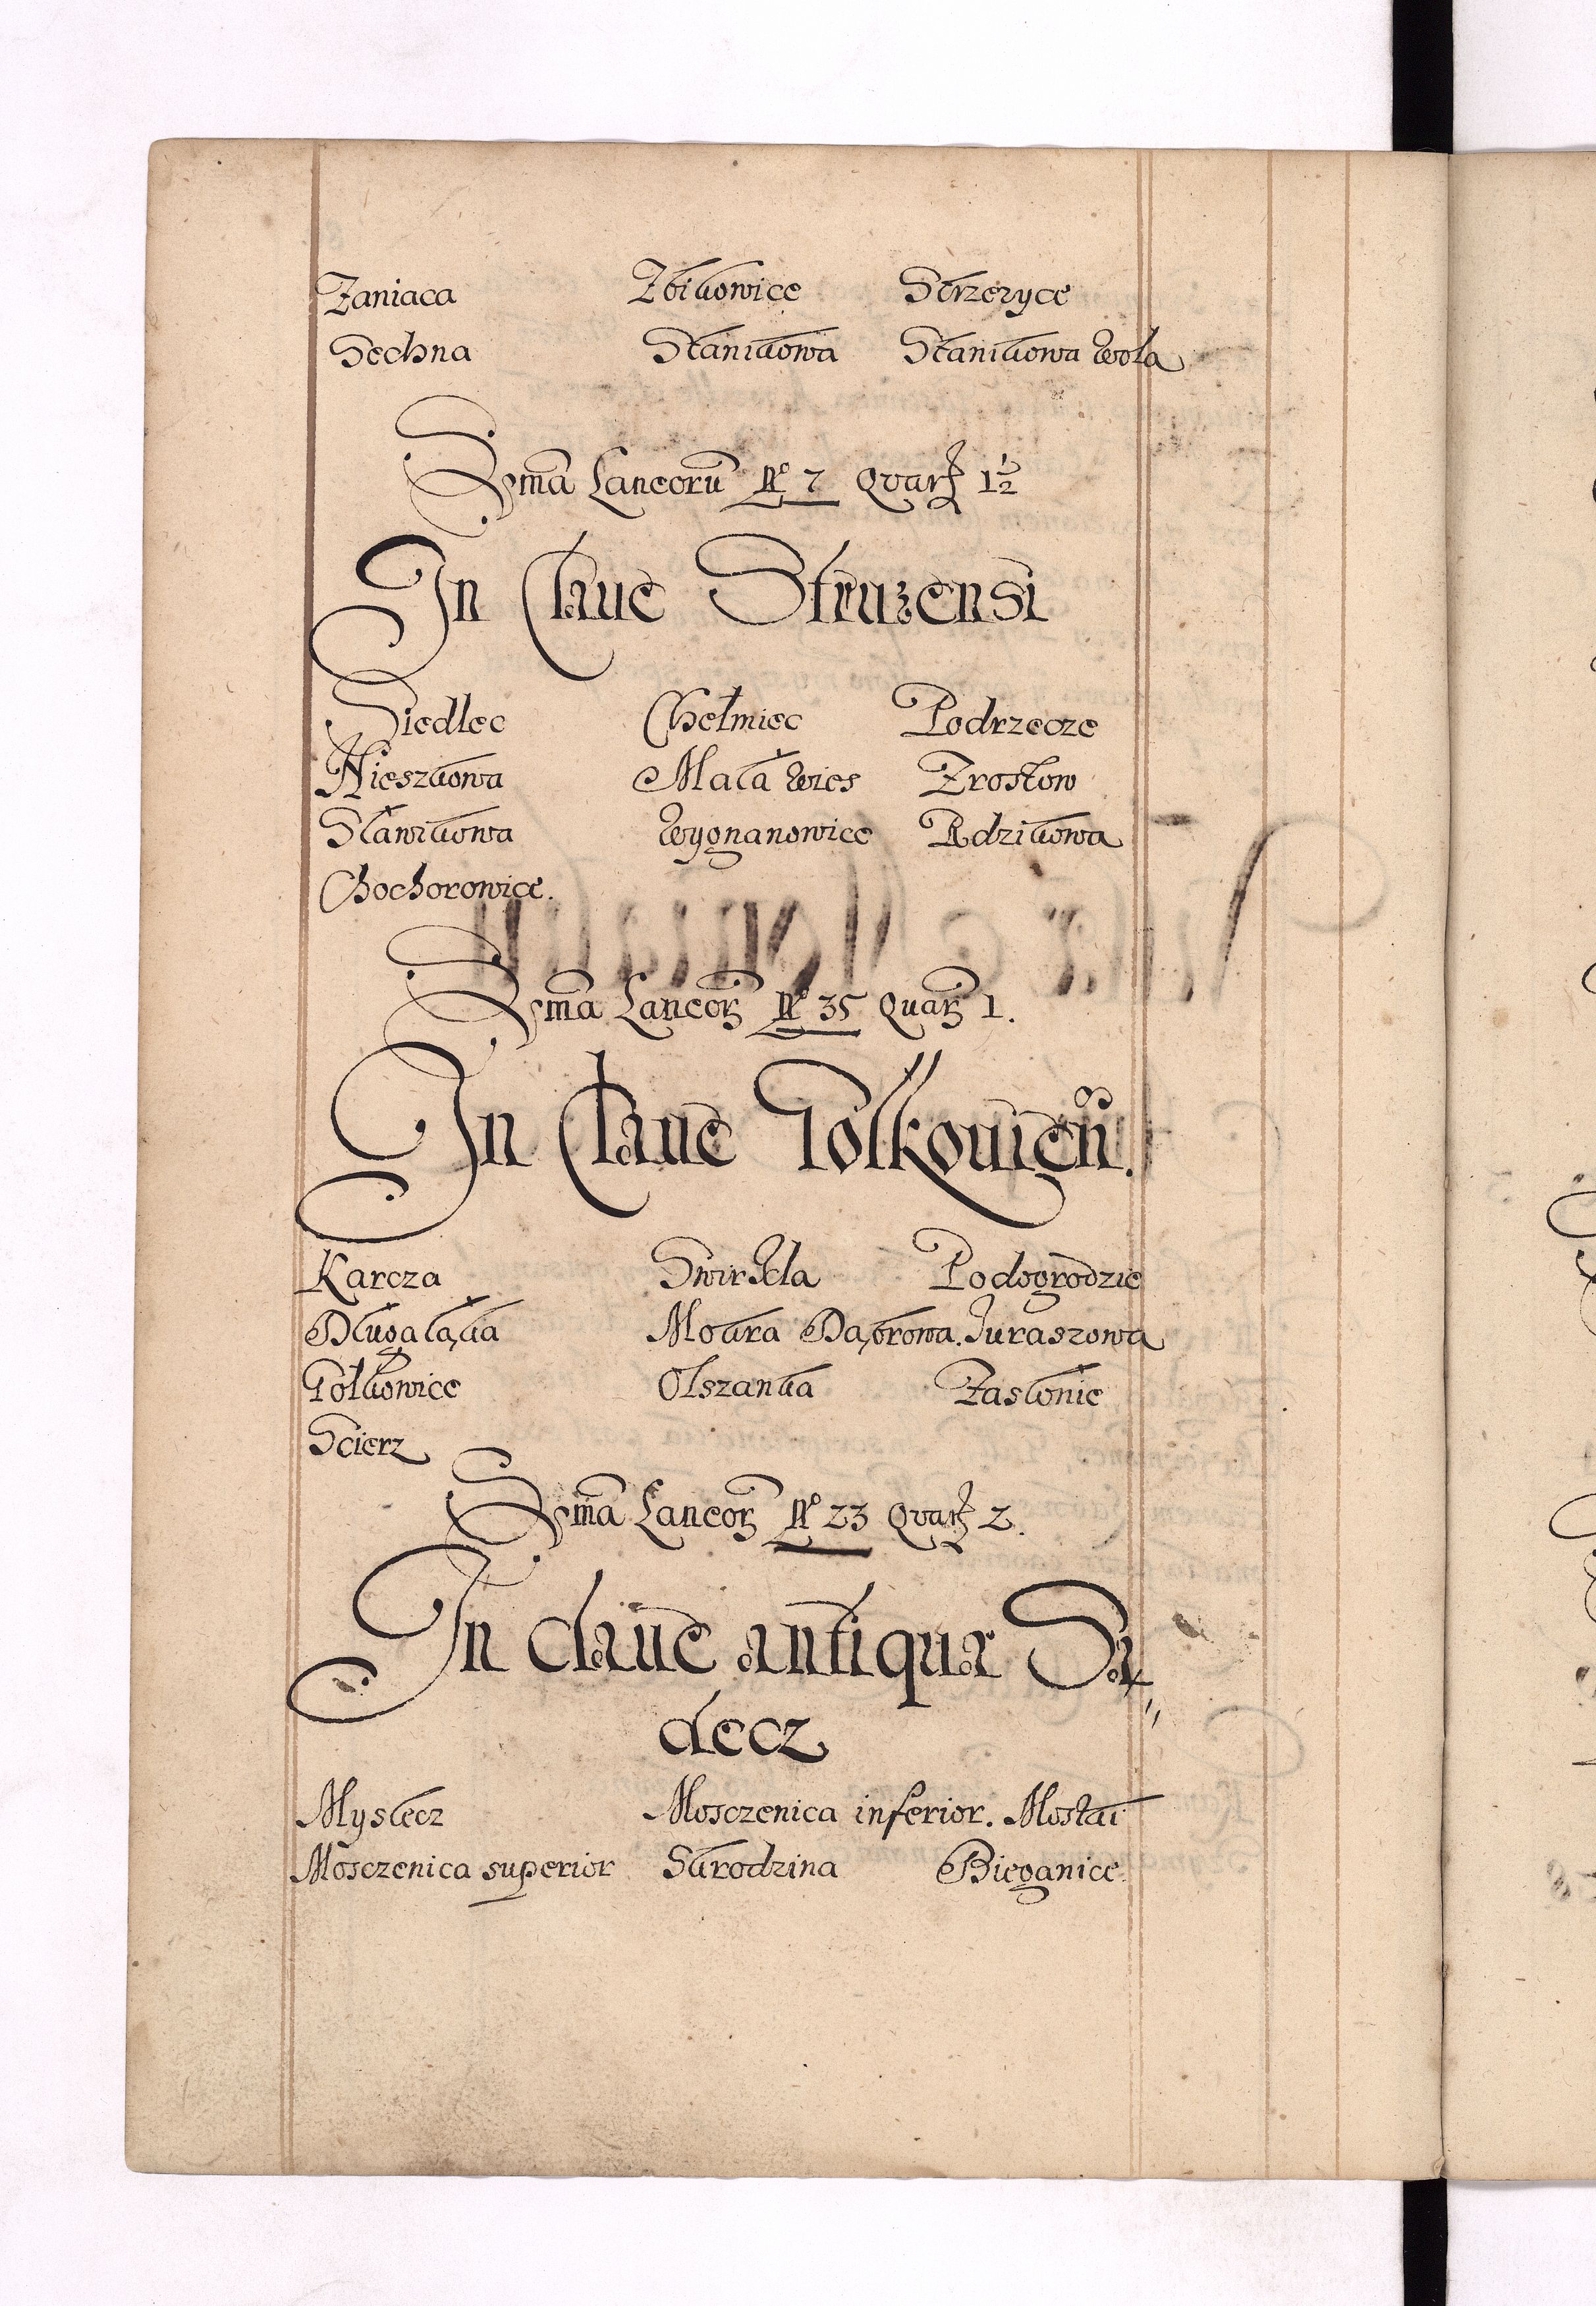 Zaniaca Zbikowice Strzezyce
Sechna Stanikowa Stanikowa Wola
Sũma Lancorũ No 7 Quart 1½
In Claue Struzensi
Siedlec Chełmiec Podrzecze
Nieszkowa Mała Wies Zrostow
Stawikowa Wygnanowice Rdzikowa
Chochorowice.
Sũma Lancorʒ No 35 Quarʒ 1.
In Claue Golkouicen.
Karcza Swirkla Podogrodzie
Długałąka Mokra Dąbrowa. Juraszowa
Gołkowice Olszanka Zasłonie
Scierz
Sũma Lancorʒ No 23 Quarʒ 2.
In claue antiqua Sa
decz
Myslecz Mosczenica inferior. Mostki
Mosczenica superior Skrodzina Bieganice.